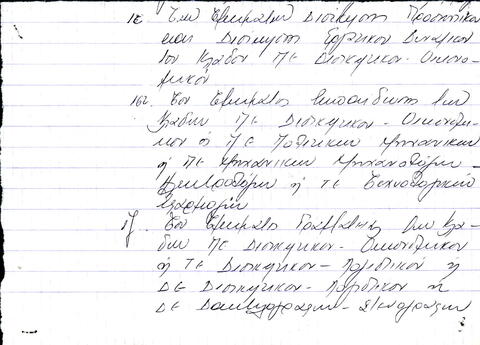 ιε Των Τμημάτων Διοίκησης Προσωπικού
και Διοίκησης Εργατικού Δυναμικού
του Κλάδου ΠΕ Διοικητικού - Οικονο-
μικού
ιστ. Του Τμήματος Εκπαίδευσης των
Κλάδων ΠΕ Διοικητικού - Οικονομι-
κού ή ΠΕ Πολιτικών Μηχανικών
ή ΠΕ Μηχανικών Μηχανολόγων -
Ηλεκτρολόγων ή ΤΕ Τεχνολογικών
Εφαρμογών
ιζ. Του Τμήματος Γραμματείας των Κλά-
δων ΠΕ Διοικητικού - Οικονομικού
ή ΤΕ Διοικητικού - Λογιστικού ή
ΔΕ Διοικητικού - Λογιστικού ή
ΔΕ Δακτυλογράφων - Στενογράφων